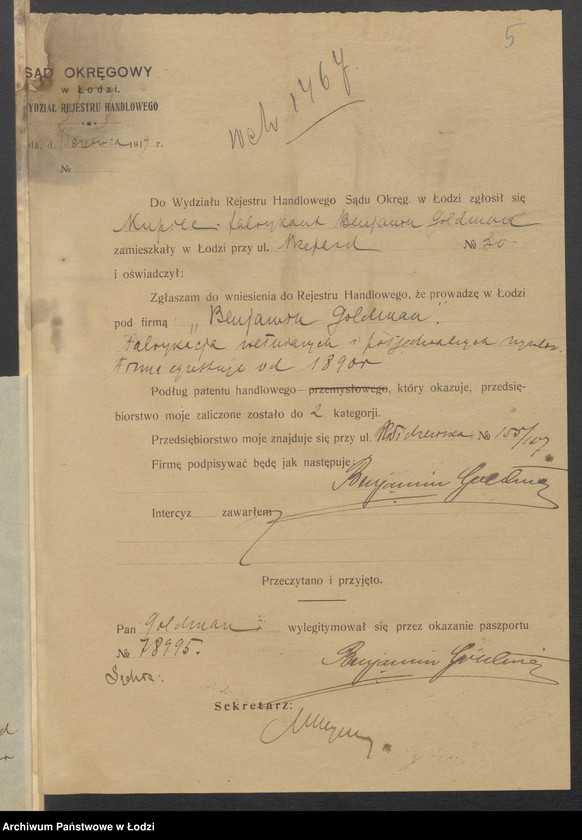 5
SĄD OKRĘGOWY
w Łodzi.
WYDZIAŁ REJESTRU HANDLOWEGO
d. Czerwca 1919 r.
№
wch 1767
Do Wydziału Rejestru Handlowego Sądu Okręg. w Łodzi zgłosił się
Kupiec-fabrykant Benjamin Goldman
zamieszkały w Łodzi przy ul. № 20
i oświadczył:
Zgłaszam do wniesienia do Rejestru Handlowego, że prowadzę w Łodzi
pod firmą „Benjamin Goldman".
Fabrykacja wełnianych i półjedwabnych
Firma egzystuje od 1890 r
Podług patentu handlowego przemysłowego, który okazuje, przedsię-
biorstwo moje zaliczone zostało do 2 kategorji.
Przedsiębiorstwo moje znajduje się przy ul. Widzewska № 155/157
Firmę podpisywać będę jak następuje:
Benjamin Goldman
Intercyz zawarłem
Przeczytano i przyjęto.
Pan Goldman wylegitymował się przez okazanie paszportu
№ 78995.
Benjamin Goldman
Sędzia:
Sekretarz:
Archiwum Państwowe w Łodzi